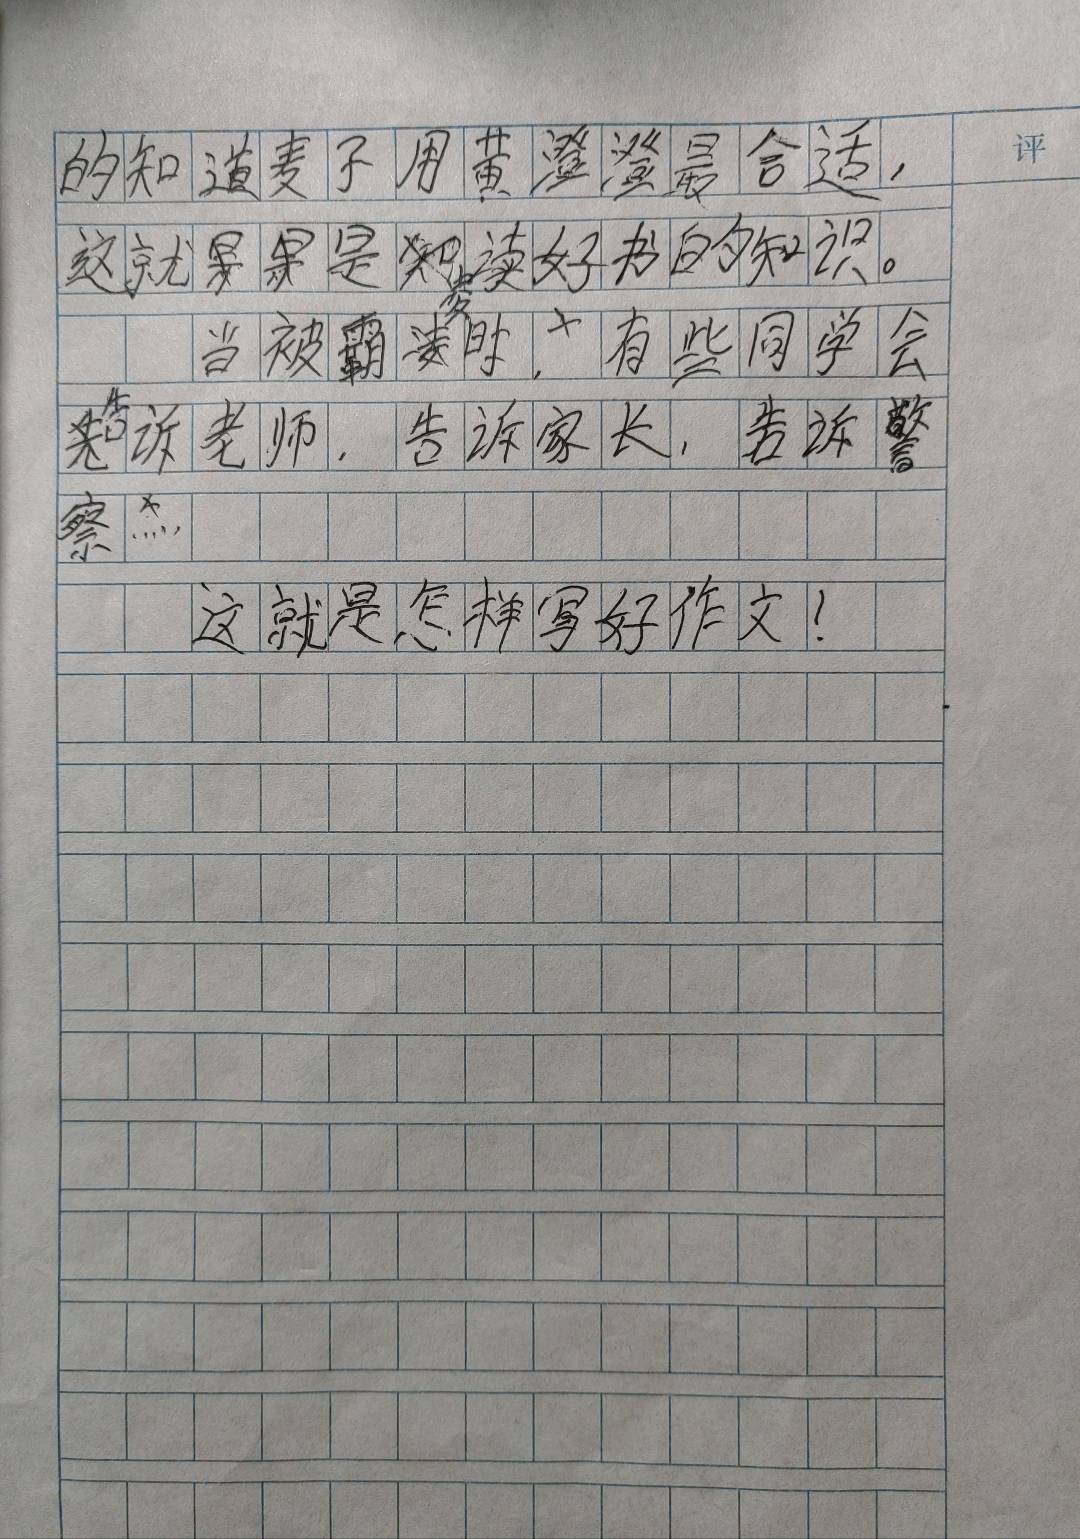 的知道麦子用黄澄澄最合适，
评
这就果是读好书的知识。
当被霸凌时，有些同学会
告诉老师，告诉家长，告诉警
察……
这就是怎样写好作文！